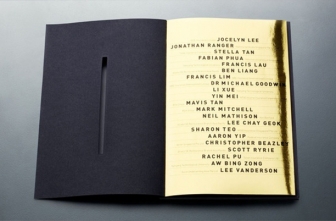 JOCELYN LEE
JONATHAN RANGER
STELLA TAN
FABIAN PHUA
FRANCIS LAU
BEN LIANG
FRANCIS LIM
DR MICHAEL GOODWIN
LI XUE
YIN MEI
MAVIS TAN
MARK MITCHELL
NEIL MATHISON
LEE CHAY GEOK
SHARON TEO
AARON YIP
CHRISTOPHER BEAZLEY
SCOTT RYRIE
RACHEL PU
AW BING ZONG
LEE VANDERSON